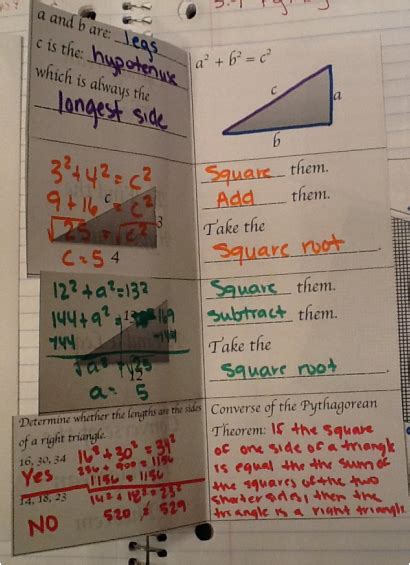 a and b are: legs
c is the: hypotenuse
which is always the
longest side
a² + b² = c²
c
a
b
3² + 4² = c²
9 + 16 = c²
√25 = √c²
c = 5
c
3
4
Square them.
Add them.
Take the
Square root.
12² + a² = 13²
144 + a² = 169
-144 -144
√a² = √25
a = 5
12
Square them.
Subtract them.
Take the
Square root.
Determine whether the lengths are the sides
of a right triangle.
16, 30, 34
16² + 30² = 34²
256 + 900 = 1156
1156 = 1156
Yes
14, 18, 23
14² + 18² = 23²
520 ≠ 529
NO
Converse of the Pythagorean
Theorem: If the square
of one side of a triangle
is equal the the sum of
the squares of the two
shorter sides, then the
triangle is a right triangle.